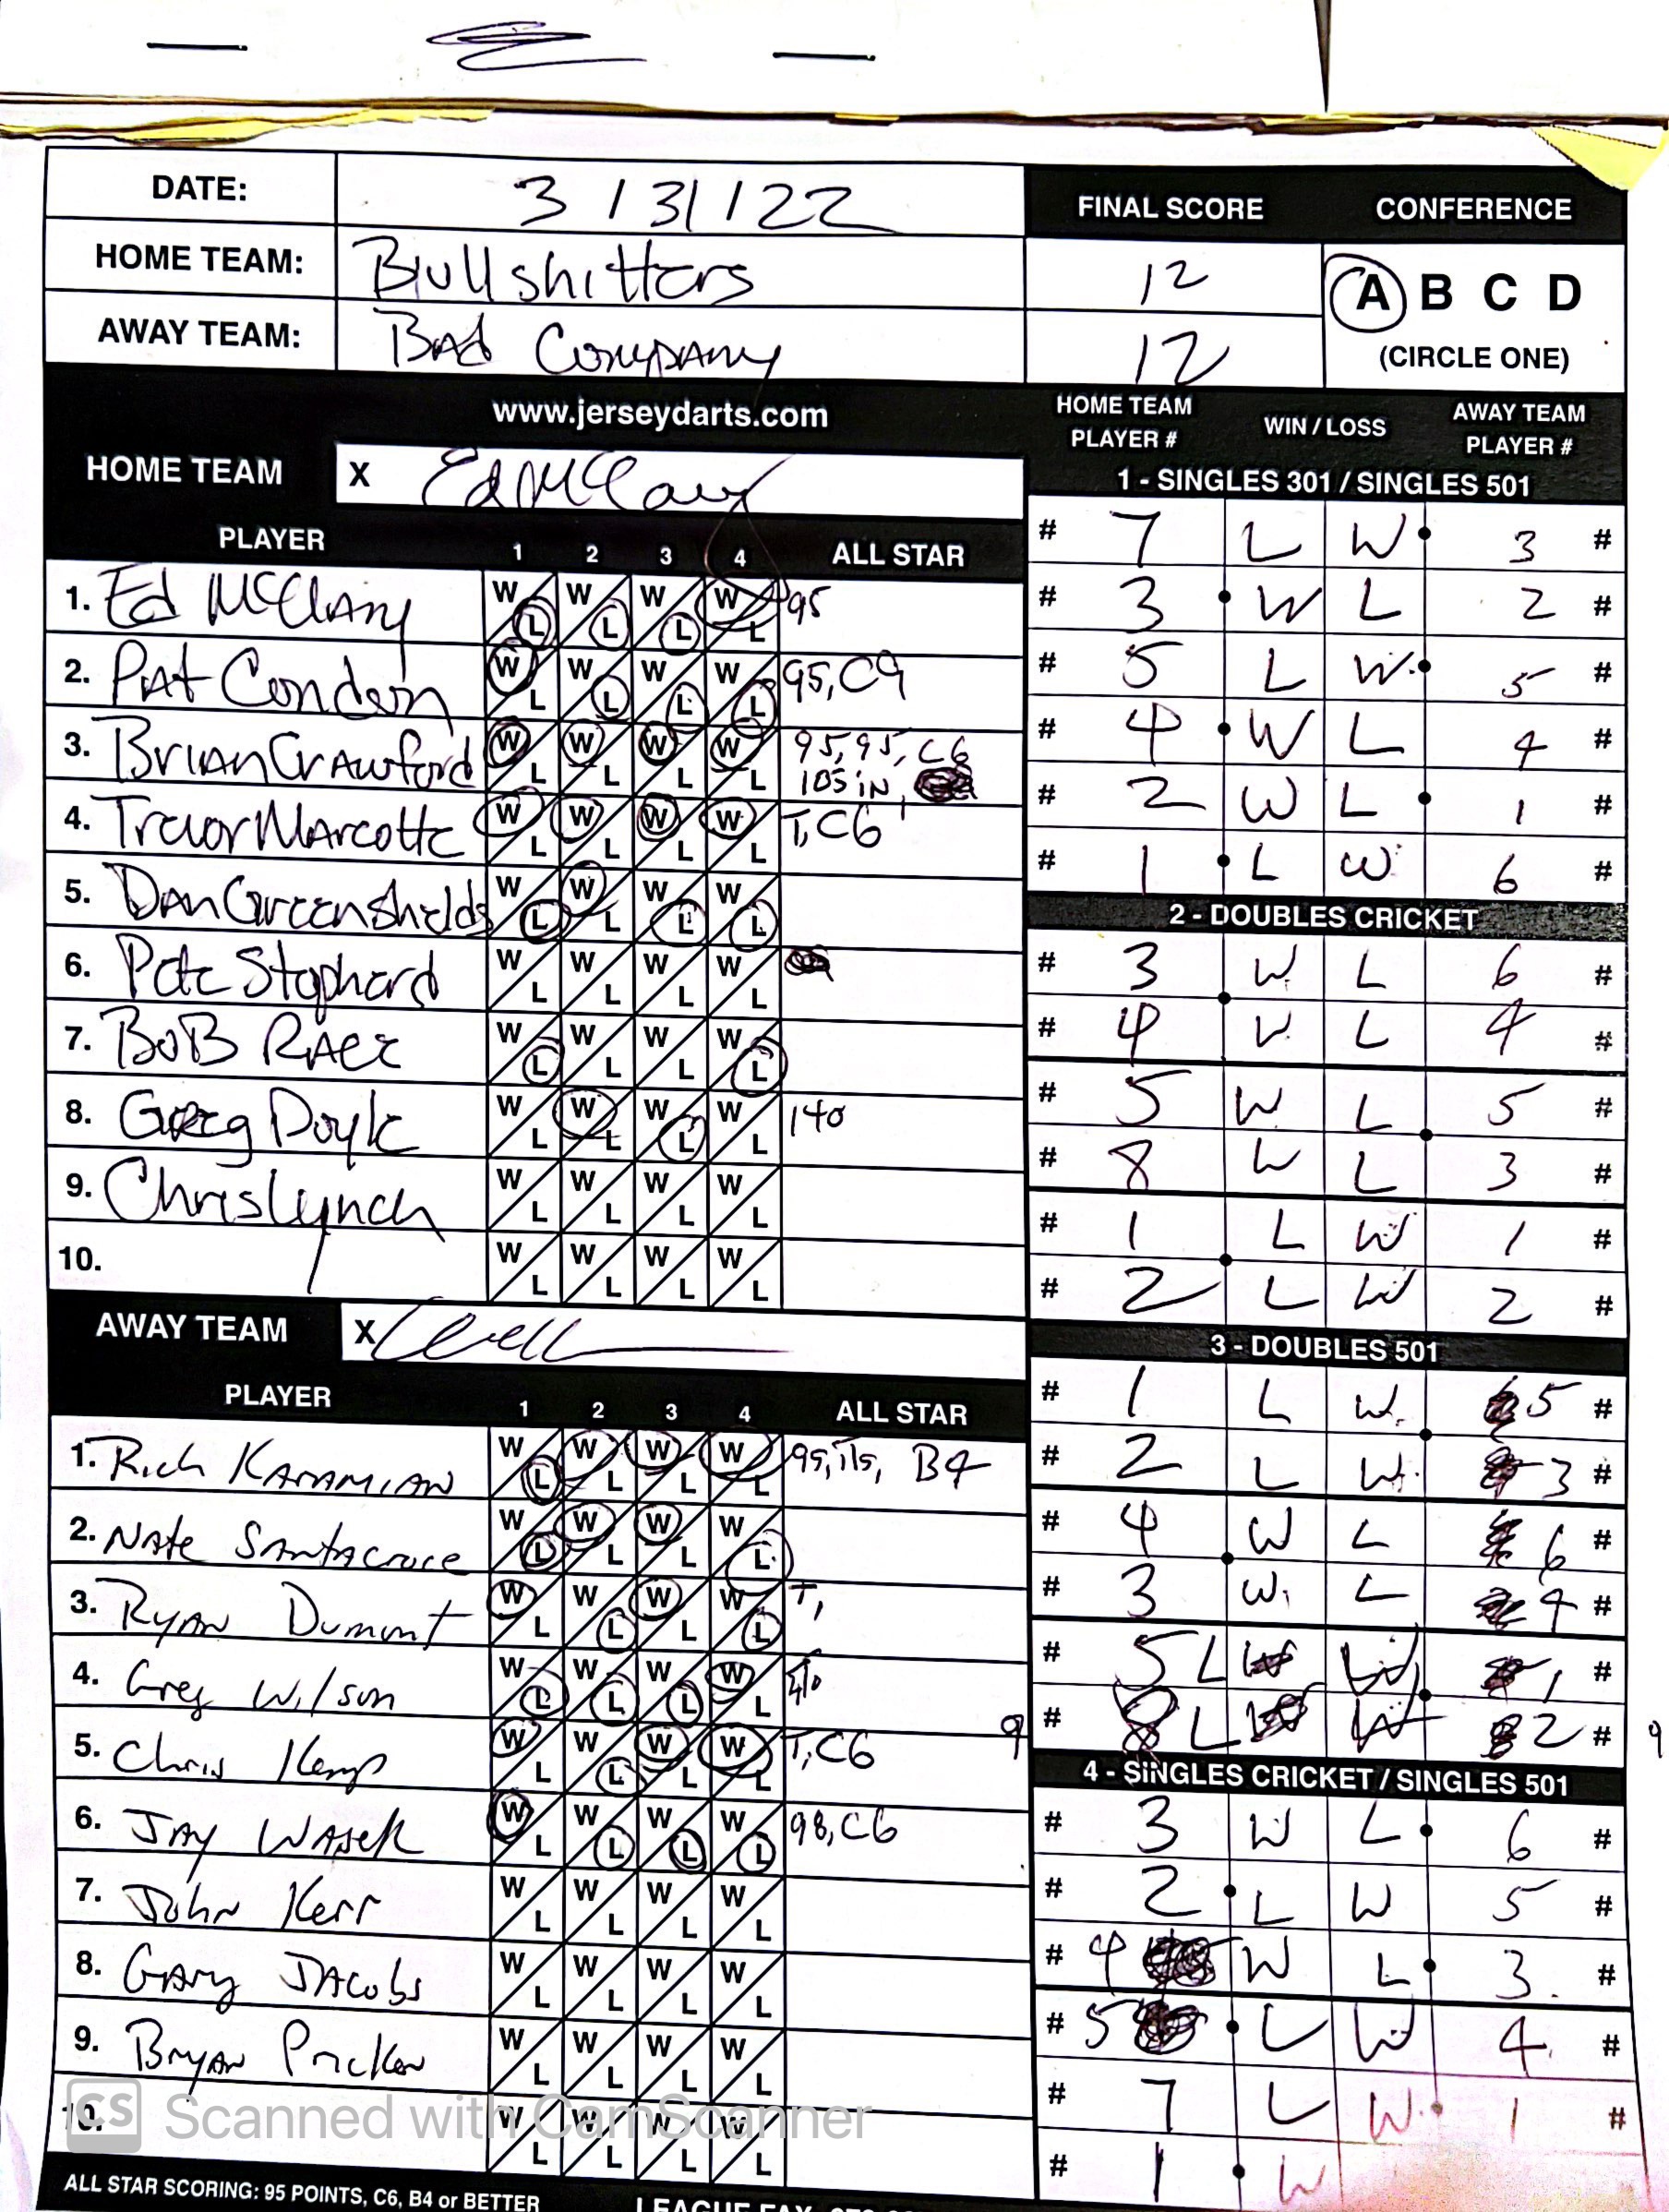 DATE: 3/31/22
HOME TEAM: Bullshitters
AWAY TEAM: Bad Company
FINAL SCORE CONFERENCE
12
12
A B C D
(CIRCLE ONE)
www.jerseydarts.com
HOME TEAM X Ed McClary
PLAYER 1 2 3 4 ALL STAR
1. Ed McClary W L W L W L W L 95
2. Pat Condon W L W L W L W L 95, C9
3. Brian Crawford W L W L W L W L 95, 95, C6
105 iN,
4. Trevor Marcotte W L W L W L W L T, C6
5. Dan Greenshields W L W L W L W L
6. Pete Stephard W L W L W L W L
7. BoB W L W L W L W L
8. Greg Doyle W L W L W L W L 140
9. Chris Lynch W L W L W L W L
10. W L W L W L W L
AWAY TEAM X
PLAYER 1 2 3 4 ALL STAR
1. Rich Karamian W L W L W L W L 95, B4
2. Nate Santacroce W L W L W L W L
3. Ryan Dumont W L W L W L W L T,
4. Greg Wilson W L W L W L W L
5. Chris Kemp W L W L W L W L T, C6
6. Jay Wasek W L W L W L W L 98, C6
7. John Kerr W L W L W L W L
8. Gary Jacobs W L W L W L W L
9. Bryan W L W L W L W L
10. W L W L W L W L
ALL STAR SCORING: 95 POINTS, C6, B4 or BETTER
HOME TEAM PLAYER # WIN / LOSS AWAY TEAM PLAYER #
1 - SINGLES 301 / SINGLES 501
# 7 L W 3 #
# 3 W L 2 #
# 5 L W 5 #
# 4 W L 4 #
# 2 W L 1 #
# 1 L W 6 #
2 - DOUBLES CRICKET
# 3 W L 6 #
# 4 W L 4 #
# 5 W L 5 #
# 8 W L 3 #
# 1 L W 1 #
# 2 L W 2 #
3 - DOUBLES 501
# 1 L W 5 #
# 2 L W 3 #
# 4 W L 6 #
# 3 W L 4 #
# 5 L W 1 #
9 # 8 L W 2 # 9
4 - SINGLES CRICKET / SINGLES 501
# 3 W L 6 #
# 2 L W 5 #
# 4 W L 3 #
# 5 L W 4 #
# 7 L W 1 #
# 1 W
CS Scanned with CamScanner